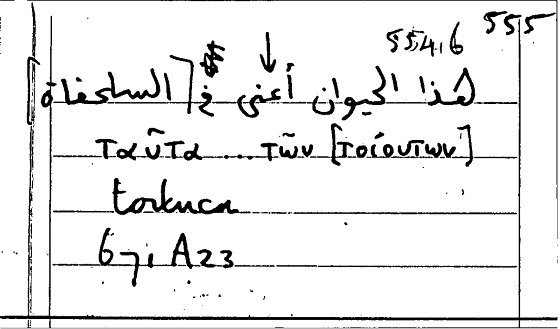 555
554,6
هذا الحيوان أعنى [السلحفاة
ταῦτα ... τῶν [τοιούτων]
tortuca
671 A23